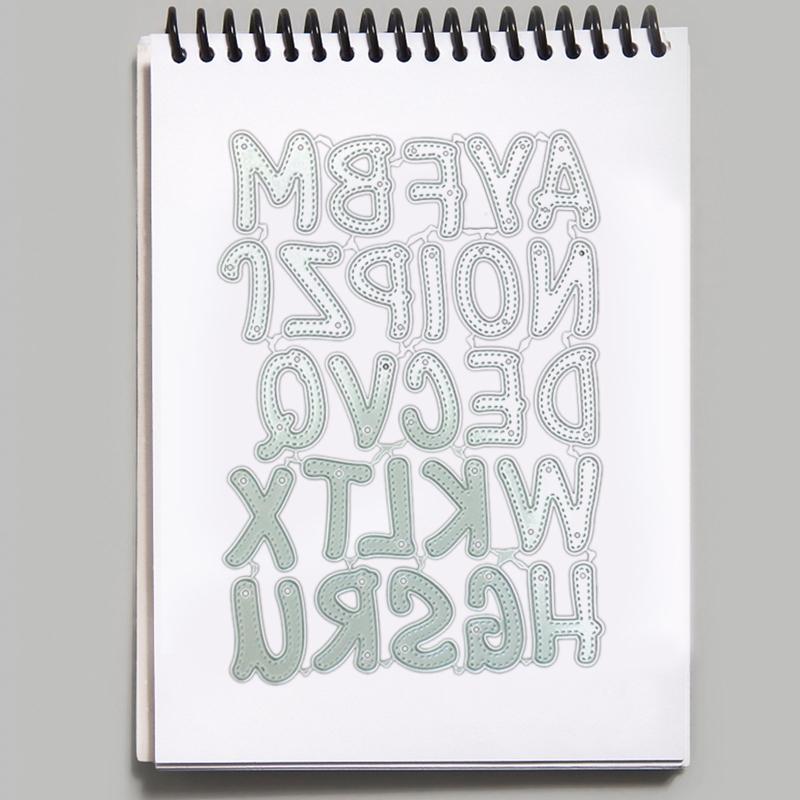 AYFBM
NOIPZJ
DECVQ
WKLTX
HGSRU